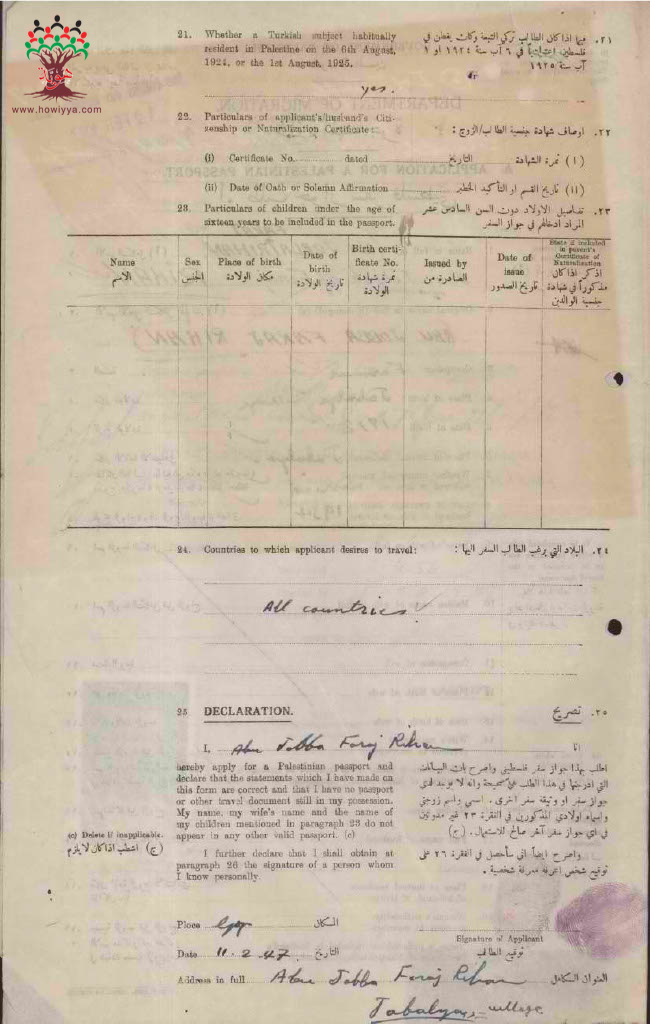 هوية
www.howiyya.com
21. Whether a Turkish subject habitually resident in Palestine on the 6th August, 1924, or the 1st August, 1925.
٢١. فيما اذا كان الطالب تركي التبعة وكان يقطن في فلسطين اعتيادياً في ٦ آب سنة ١٩٢٤ او ١ آب سنة ١٩٢٥
yes.
22. Particulars of applicant's/husband's Citizenship or Naturalization Certificate:
٢٢. اوصاف شهادة جنسية الطالب/الزوج :
(i) Certificate No. dated التاريخ (١) نمرة الشهادة
(ii) Date of Oath or Solemn Affirmation (ii) تاريخ القسم او التأكيد الخطير
23. Particulars of children under the age of sixteen years to be included in the passport.
٢٣. تفاصيل الاولاد دون السن السادس عشر المراد ادخالهم في جواز السفر
Name الاسم
Sex الجنس
Place of birth مكان الولادة
Date of birth تاريخ الولادة
Birth certificate No. نمرة شهادة الولادة
Issued by الصادرة من
Date of issue تاريخ الصدور
State if included in parent's Certificate of Naturalization اذكر اذا كان مذكوراً في شهادة جنسية الوالدين
24. Countries to which applicant desires to travel: ٢٤. البلاد التي يرغب الطالب السفر اليها :
All countries
25 DECLARATION. ٢٥. تصريح
I, Abu Jobba Faraj Rihan انا
hereby apply for a Palestinian passport and
declare that the statements which I have made on
this form are correct and that I have no passport
or other travel document still in my possession.
My name, my wife's name and the name of
my children mentioned in paragraph 23 do not
appear in any other valid passport. (c)
اطلب بهذا جواز سفر فلسطيني واصرح بان البيانات
التي ادرجتها في هذا الطلب هي صحيحة وانه لا يوجد لدي
جواز سفر او وثيقة سفر اخرى. اسمي واسم زوجتي
واسماء اولادي المذكورين في الفقرة ٢٣ غير مدونين
في اي جواز سفر آخر صالح للاستعمال. (ج)
(c) Delete if inapplicable.
(ج) اشطب اذا كان لا يلزم
I further declare that I shall obtain at
paragraph 26 the signature of a person whom
I know personally.
واصرح ايضاً اني سأحصل في الفقرة ٢٦ على
توقيع شخص اعرفه معرفة شخصية.
Place المكان
Signature of Applicant
توقيع الطالب
Date 11.2.47 التاريخ
Address in full Abu Jobba Faraj Rihan العنوان الكامل
Jabalya village